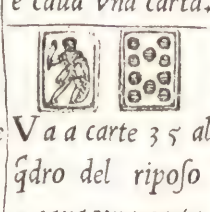 e caua vna carta.
V a a carte 3 5 al
q̃dro del ripoſo